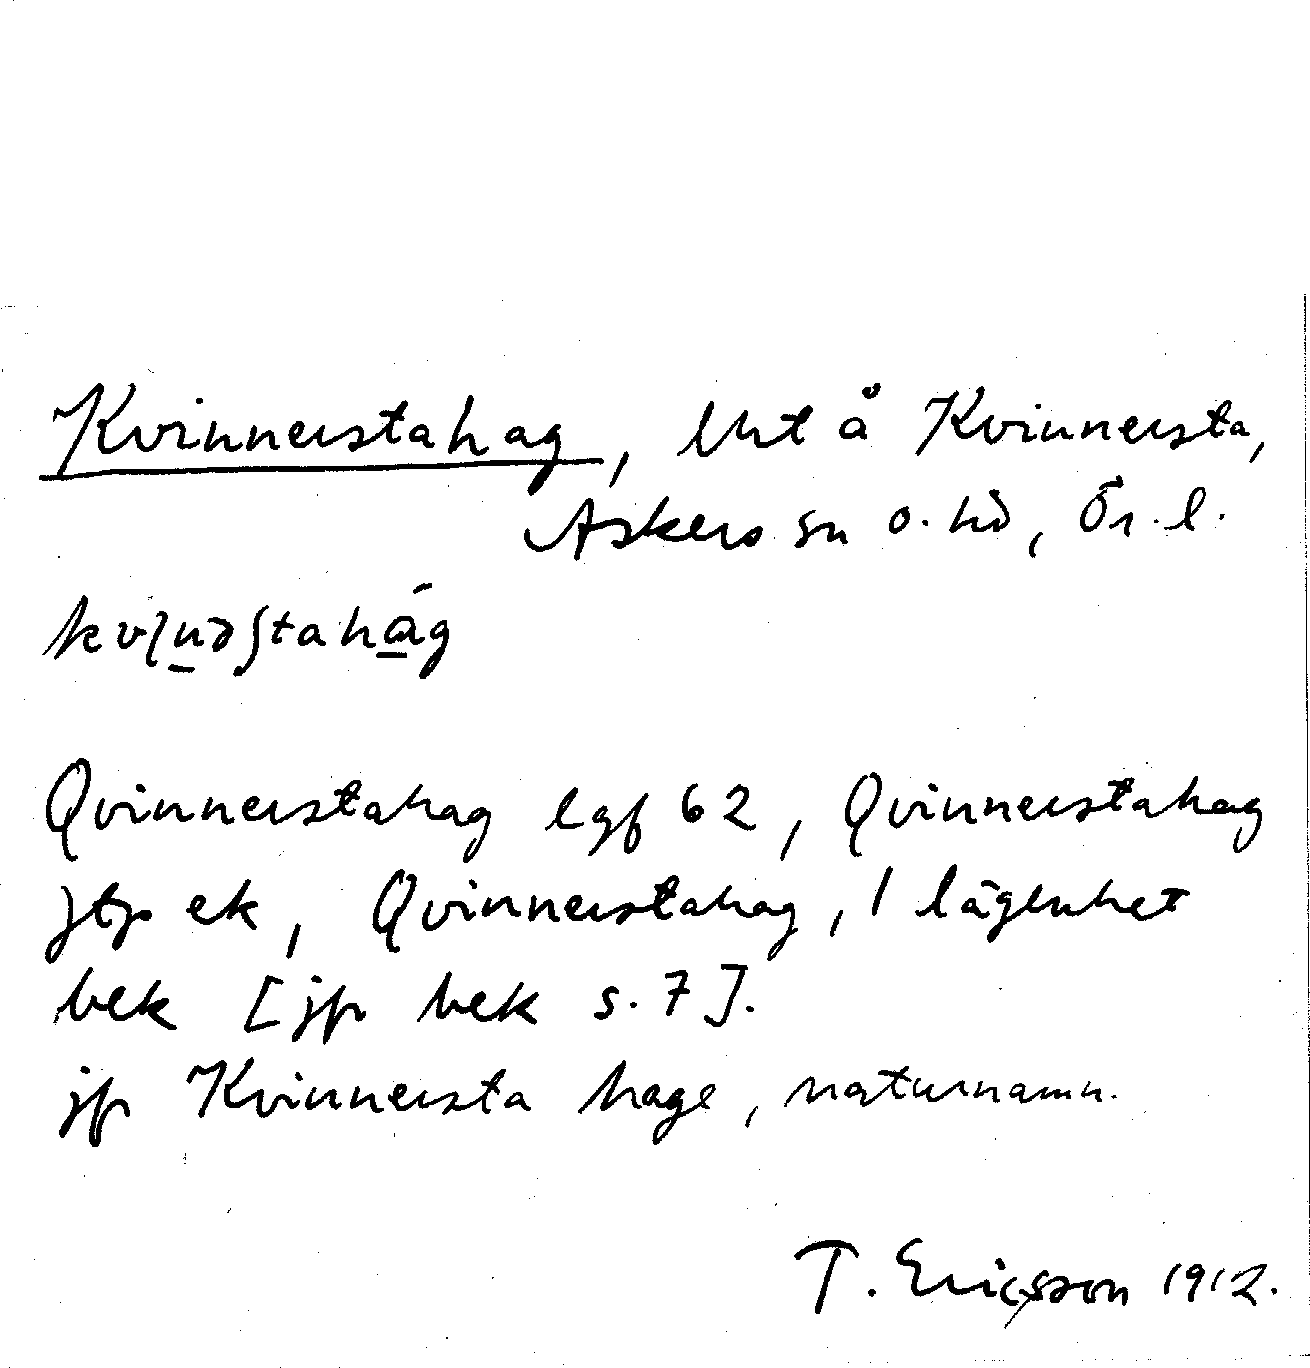 Kvinnerstahag, lht å Kvinnersta,
Askers sn o. hd, Ör. l.
Qvinnerstahag lgf 62, Qvinnerstahag
jtp ek, Qvinnerstahag, 1 lägenhet
bek [jfr bek s. 7].
jfr Kvinnersta hage, naturnamn.
T. Ericsson 1912.